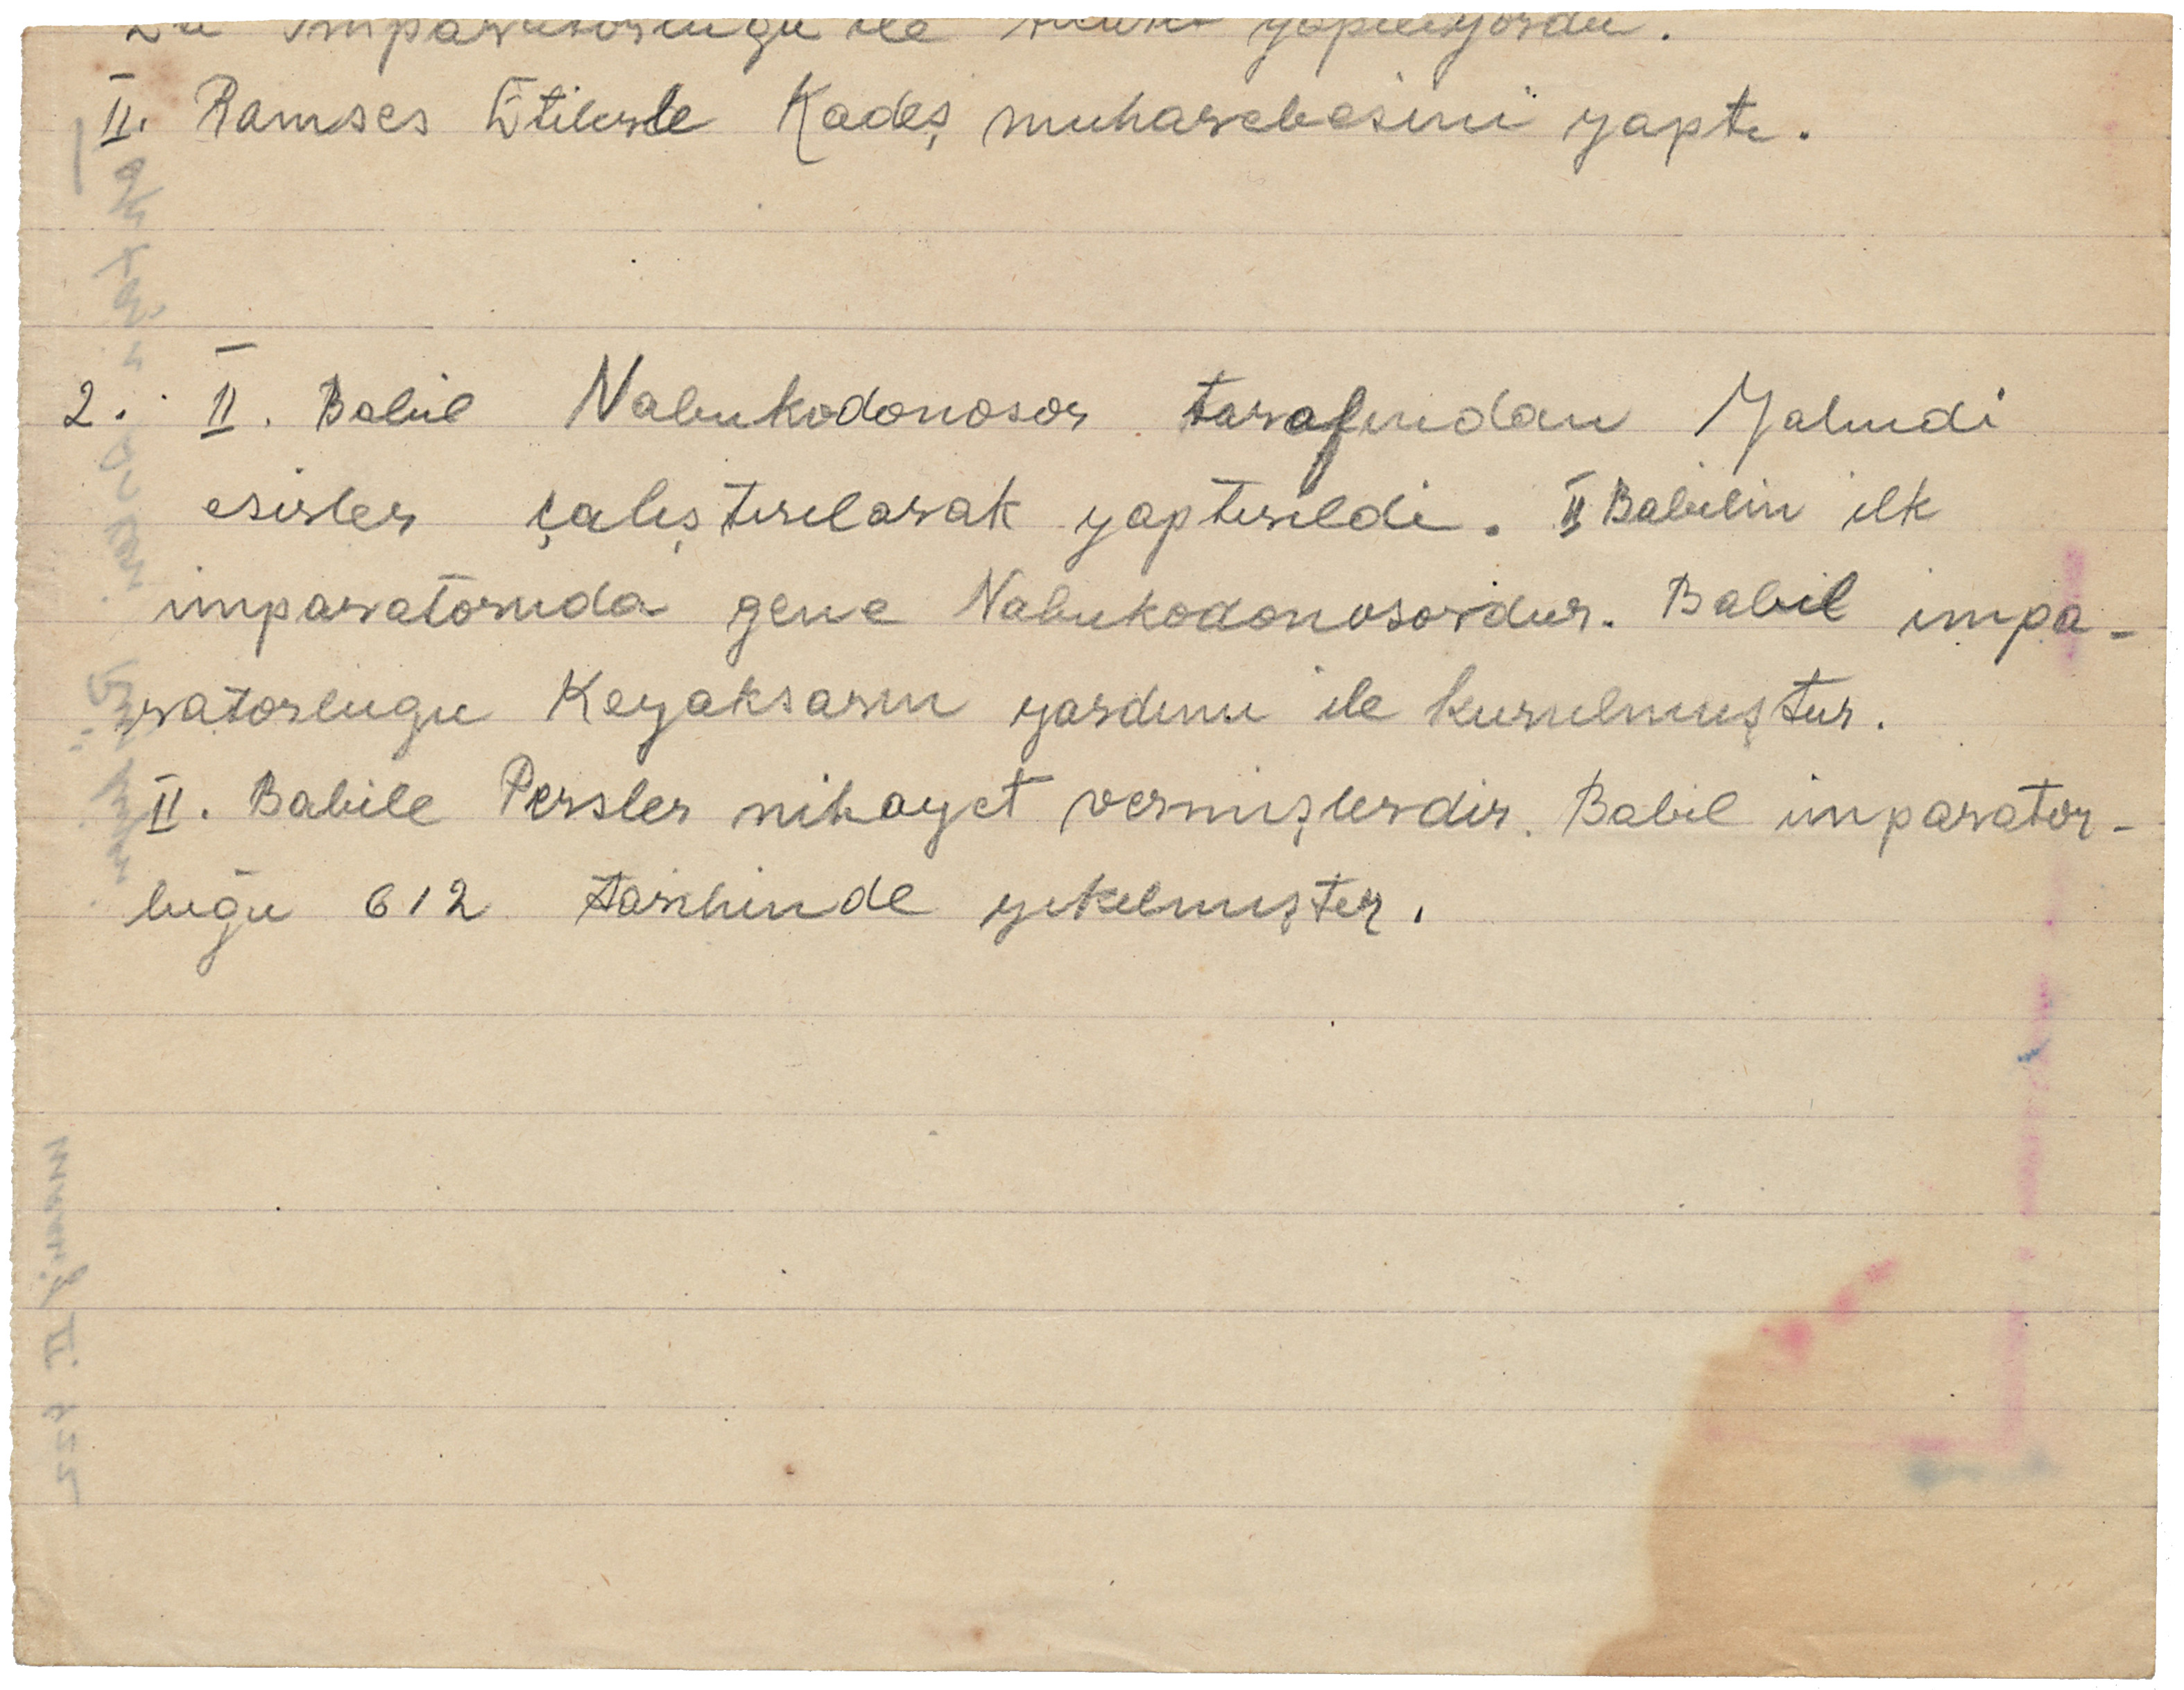 imparatorluğu ile yapılıyordu.
II. Ramses Etilerle Kadeş muharebesini yaptı.
2. II. Babil Nabukodonosor tarafından Yahudi
esirler çalıştırılarak yaptırıldı. II Babilin ilk
imparatoruda gene Nabukodonosordur. Babil impa-
ratorlugu Keyaksarın yardımı ile kurulmuştur.
II. Babile Persler nihayet vermişlerdir. Babil imparator-
luğu 612 tarihinde yıkılmıştır.